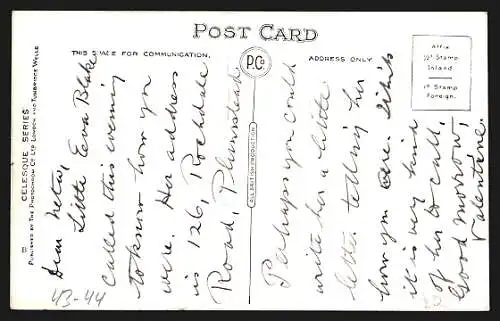 POST CARD
THIS SPACE FOR COMMUNICATION.
ADDRESS ONLY.
PC
Affix
½d Stamp
Inland.
1d Stamp
Foreign.
CELESQUE SERIES
PUBLISHED BY THE PHOTOCHROM CO. LTD. LONDON AND TUNBRIDGE WELLS
ALL BRITISH PRODUCTION
Dear
Little Eva Blake
called this evening
to know how you
were. Her address
is 126, Rochdale
Road, Plumstead.
Perhaps you could
write her a little
letter telling her
how you are.
it is very kind
of her to call.
Good morrow,
Valentine.
43-44